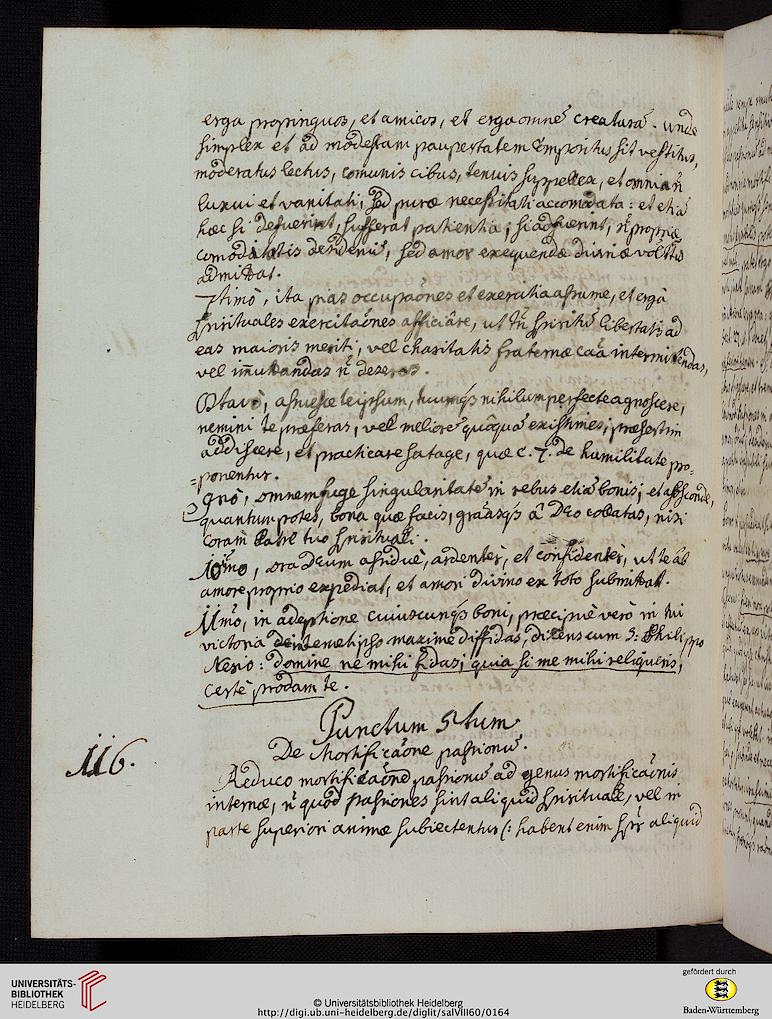 erga propinquos, et amicos, et erga omnē creaturā. unde
simplex et ad modestam paupertatem compositus sit vestitus,
moderatus lectus, comunis cibus, tenuis suppellex, et omnia ñ
luxui et vanitati, sed puræ necessitati accomodata: et etiā
hæc si defuerint, sufferat patientia; si adfuerint, ñ propriæ
comoditatis desideriū, sed amor exequendæ divinæ volūtis
admittat.
7timò, ita pias occupaōnes et exercitia assume, et ergà
spirituales exercitaōnes afficiare, ut tñ spiritûs libertatis ad
eas maioris meriti, vel charitatis fraternæ caā intermittendas,
vel im̄utandas ñ deseras.
Octavò, assuesce teipsum, tuumq₃ nihilum perfecte agnoscere,
nemini te præferas, vel meliorē quōquā existimes; præsertim
addiscere, et practicare satage, quæ c. 7. de humilitate pro=
=ponentur.
9nò, omnem fuge singularitatē in rebus etiā bonis; et absconde,
quantum potes, bona quæ facis, grāasq₃ â Deo collatas, nisi
coram Patre tuo spirituali.
10mo, ora Deum assiduè, ardenter, et confidenter, ut te ab
amore proprio expediat, et amori divino ex toto submittat.
11mò, in adeptione cuiuscunq₃ boni, præcipuè verò in tui
victoria de temetipso maximè diffidas, dicens cum S: Philippo
Nerio: domine ne mihi fidas; quia si me mihi reliqueris,
certè prodam te.
Punctum 5tum.
De Mortificaōne passionū.
116.
Reduco mortificaōnē passionū ad genus mortificaōnis
internæ, ñ quòd passiones sint aliquid spirituale, vel in
parte superiori animæ subiectentur (: habent enim spr aliquid
UNIVERSITÄTS-
BIBLIOTHEK
HEIDELBERG
© Universitätsbibliothek Heidelberg
http://digi.ub.uni-heidelberg.de/diglit/salVIII60/0164
gefördert durch
Baden-Württemberg